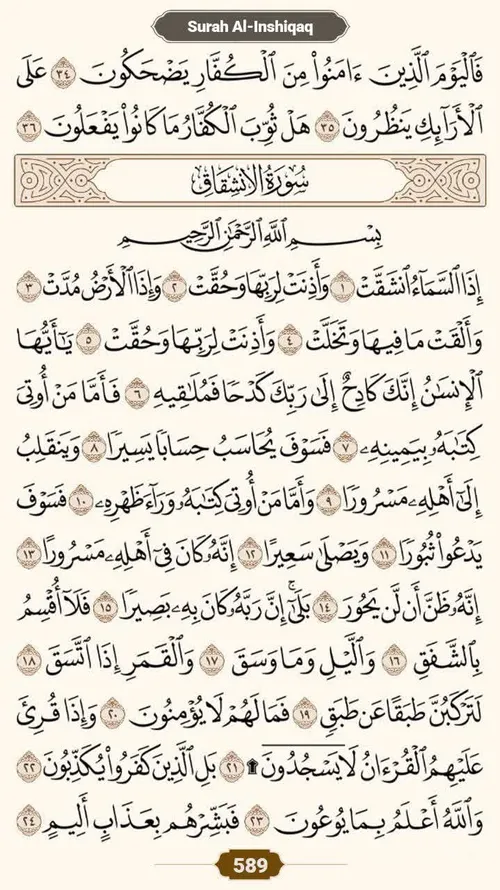 Surah Al-Inshiqaq
فَٱلۡيَوۡمَ ٱلَّذِينَ ءَامَنُواْ مِنَ ٱلۡكُفَّارِ يَضۡحَكُونَ ٣٤ عَلَى
ٱلۡأَرَآئِكِ يَنظُرُونَ ٣٥ هَلۡ ثُوِّبَ ٱلۡكُفَّارُ مَا كَانُواْ يَفۡعَلُونَ ٣٦
سُورَةُ الانشِقَاقِ
بِسۡمِ ٱللَّهِ ٱلرَّحۡمَٰنِ ٱلرَّحِيمِ
إِذَا ٱلسَّمَآءُ ٱنشَقَّتۡ ١ وَأَذِنَتۡ لِرَبِّهَا وَحُقَّتۡ ٢ وَإِذَا ٱلۡأَرۡضُ مُدَّتۡ ٣
وَأَلۡقَتۡ مَا فِيهَا وَتَخَلَّتۡ ٤ وَأَذِنَتۡ لِرَبِّهَا وَحُقَّتۡ ٥ يَٰٓأَيُّهَا
ٱلۡإِنسَٰنُ إِنَّكَ كَادِحٌ إِلَىٰ رَبِّكَ كَدۡحٗا فَمُلَٰقِيهِ ٦ فَأَمَّا مَنۡ أُوتِيَ
كِتَٰبَهُۥ بِيَمِينِهِۦ ٧ فَسَوۡفَ يُحَاسَبُ حِسَابٗا يَسِيرٗا ٨ وَيَنقَلِبُ
إِلَىٰٓ أَهۡلِهِۦ مَسۡرُورٗا ٩ وَأَمَّا مَنۡ أُوتِيَ كِتَٰبَهُۥ وَرَآءَ ظَهۡرِهِۦ ١٠ فَسَوۡفَ
يَدۡعُواْ ثُبُورٗا ١١ وَيَصۡلَىٰ سَعِيرًا ١٢ إِنَّهُۥ كَانَ فِيٓ أَهۡلِهِۦ مَسۡرُورًا ١٣
إِنَّهُۥ ظَنَّ أَن لَّن يَحُورَ ١٤ بَلَىٰٓۚ إِنَّ رَبَّهُۥ كَانَ بِهِۦ بَصِيرٗا ١٥ فَلَآ أُقۡسِمُ
بِٱلشَّفَقِ ١٦ وَٱلَّيۡلِ وَمَا وَسَقَ ١٧ وَٱلۡقَمَرِ إِذَا ٱتَّسَقَ ١٨
لَتَرۡكَبُنَّ طَبَقًا عَن طَبَقٖ ١٩ فَمَا لَهُمۡ لَا يُؤۡمِنُونَ ٢٠ وَإِذَا قُرِئَ
عَلَيۡهِمُ ٱلۡقُرۡءَانُ لَا يَسۡجُدُونَۤ۩ ٢١ بَلِ ٱلَّذِينَ كَفَرُواْ يُكَذِّبُونَ ٢٢
وَٱللَّهُ أَعۡلَمُ بِمَا يُوعُونَ ٢٣ فَبَشِّرۡهُم بِعَذَابٍ أَلِيمٍ ٢٤
589